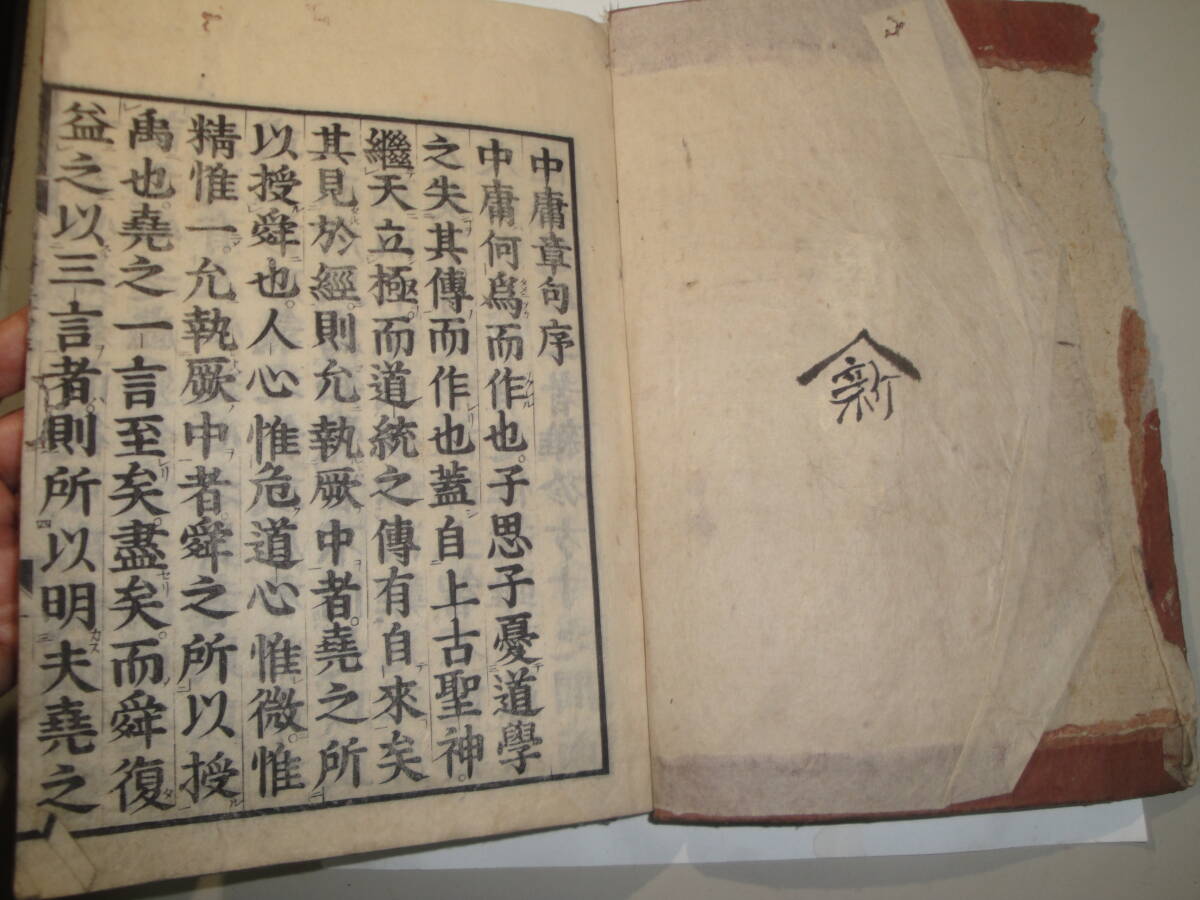 新
中庸章句序
中庸何爲而作也。子思子憂道學
之失其傳而作也蓋自上古聖神。
繼天立極。而道統之傳有自來矣
其見於經。則允執厥中者。堯之所
以授舜也。人心惟危道心惟微。惟
精惟一。允執厥中者。舜之所以授
禹也。堯之一言至矣。盡矣。而舜復
益之以三言者。則所以明夫堯之